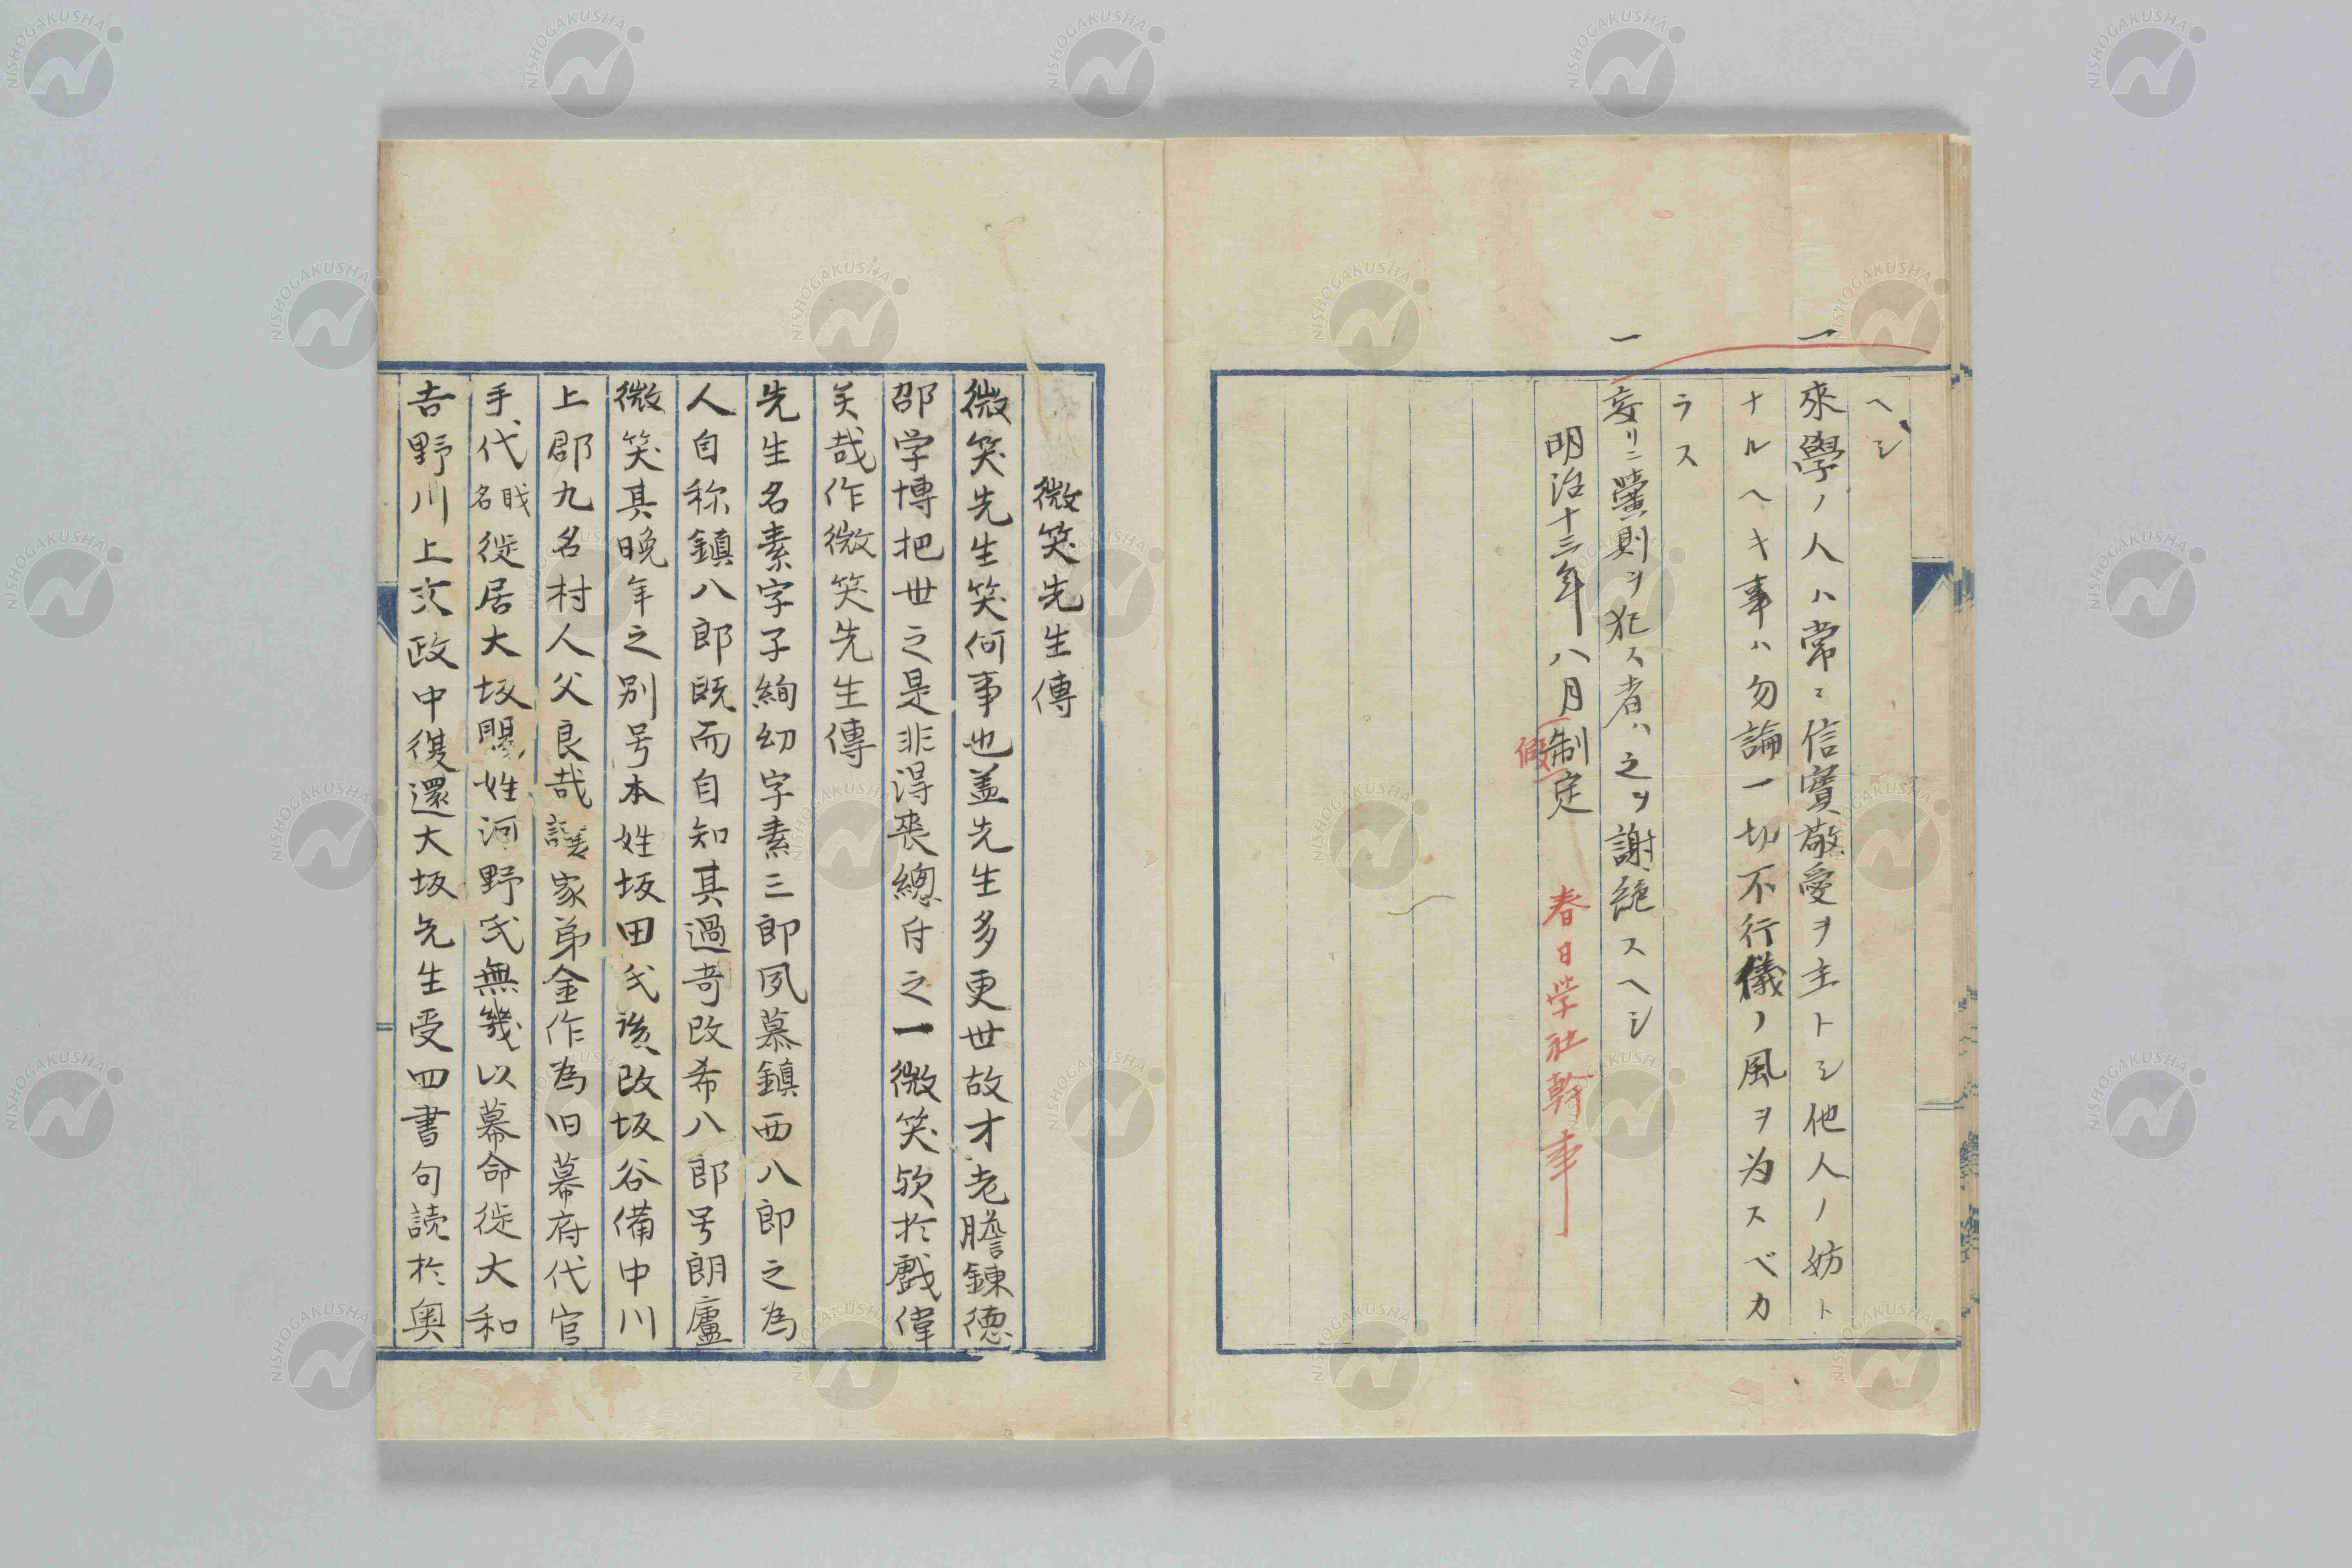 ヘシ
一 來學ノ人ハ常ニ信實敬愛ヲ主トシ他人ノ妨ト
ナルヘキ事ハ勿論一切不行儀ノ風ヲ为スベカ
ラス
一 妄リニ黌則ヲ犯ス者ハ之ヲ謝絶スヘシ
明治十三年八月制定 春日学社幹事
假
微笑先生傳
微笑先生笑何事也盖先生多更世故才老膽錬德
邵学博把世之是非得喪總付之一微笑欤於戲偉
矣哉作微笑先生傳
先生名素字子絢幻字素三郎夙慕鎮西八郎之為
人自称鎮八郎既而自知其過奇改希八郎号朗廬
微笑其晩年之别号本姓坂田氏後改坂谷備中川
上郡九名村人父良哉讓家弟金作為旧幕府代官
手代名戝徙居大坂賜姓河野氏無幾以幕命徙大和
吉野川上文政中復還大坂先生受四書句読於奥
NISHOGAKUSHA